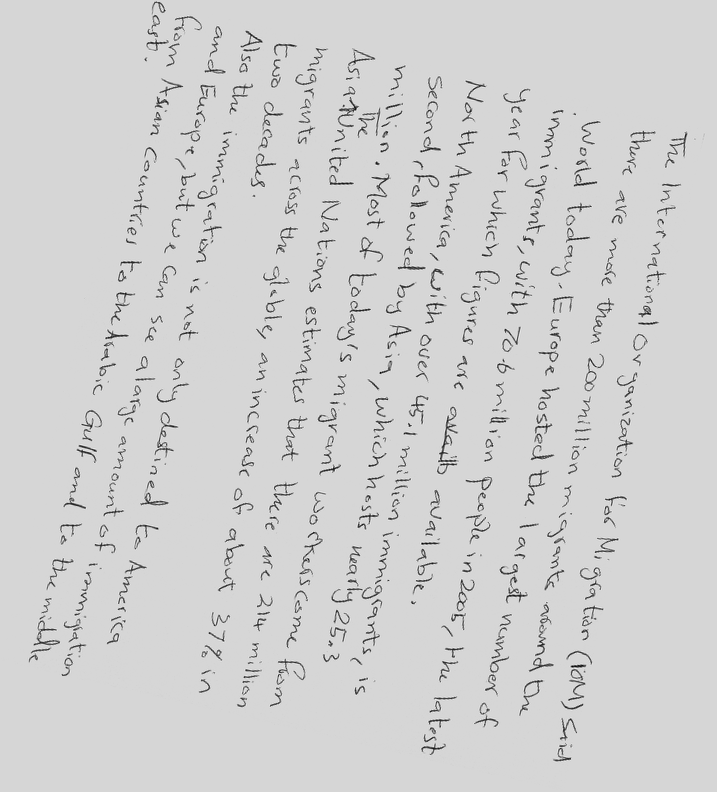 The International Organization for Migration (IOM) said
there are more than 200 million migrants around the
World today. Europe hosted the largest number of
immigrants, with 70.6 million people in 2005, the latest
year for which figures are available.
North America, with over 45.1 million immigrants, is
second, followed by Asia, which hosts nearly 25.3
million. Most of today's migrant workers come from
Asia. The United Nations estimates that there are 214 million
migrants across the glable, an increase of about 37% in
two decades.
Also the immigration is not only destined to America
and Europe, but we can see alarge amount of immigration
from Asian Countries to the Arabic Gulf and to the middle
east.